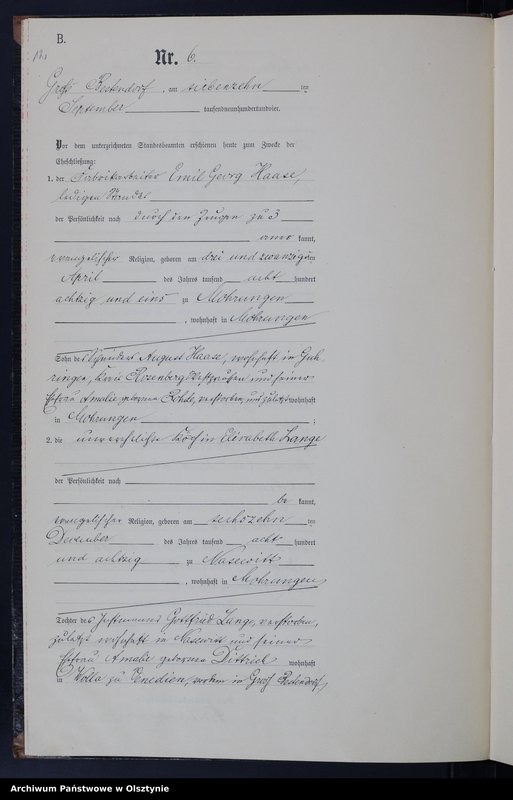 B.
Nr. 6.
Groß Bestendorf, am siebenzehn ten
September tausendneunhundertundvier.
Vor dem unterzeichneten Standesbeamten erschienen heute zum Zwecke der
Eheschließung:
1. der Emil Georg Haase,
ledigen Standes
der Persönlichkeit nach durch den Zeugen zu 3
kannt,
evangelischer Religion, geboren am drei und zwanzigsten
April des Jahres tausend acht hundert
achtzig und eins zu Mohrungen
, wohnhaft in Mohrungen
Sohn des August Haase, wohnhaft in
Kreis Rosenberg Westpreußen und seiner
Ehefrau Amalie geborene Rohde, verstorben, und zuletzt wohnhaft
in Mohrungen ;
2. die unverehelichte Köchin Elisabeth Lange
der Persönlichkeit nach
be kannt,
evangelischer Religion, geboren am sechszehn ten
Dezember des Jahres tausend acht hundert
und achtzig zu Nasewitt
, wohnhaft in Mohrungen
Tochter des Instmanns Gottfried Lange, verstorben,
zuletzt wohnhaft in Nasewitt und seiner
Ehefrau Amalie geborene Dittrich wohnhaft
in Wolla zu Venedien, vorher in Groß Bestendorf
Archiwum Państwowe w Olsztynie